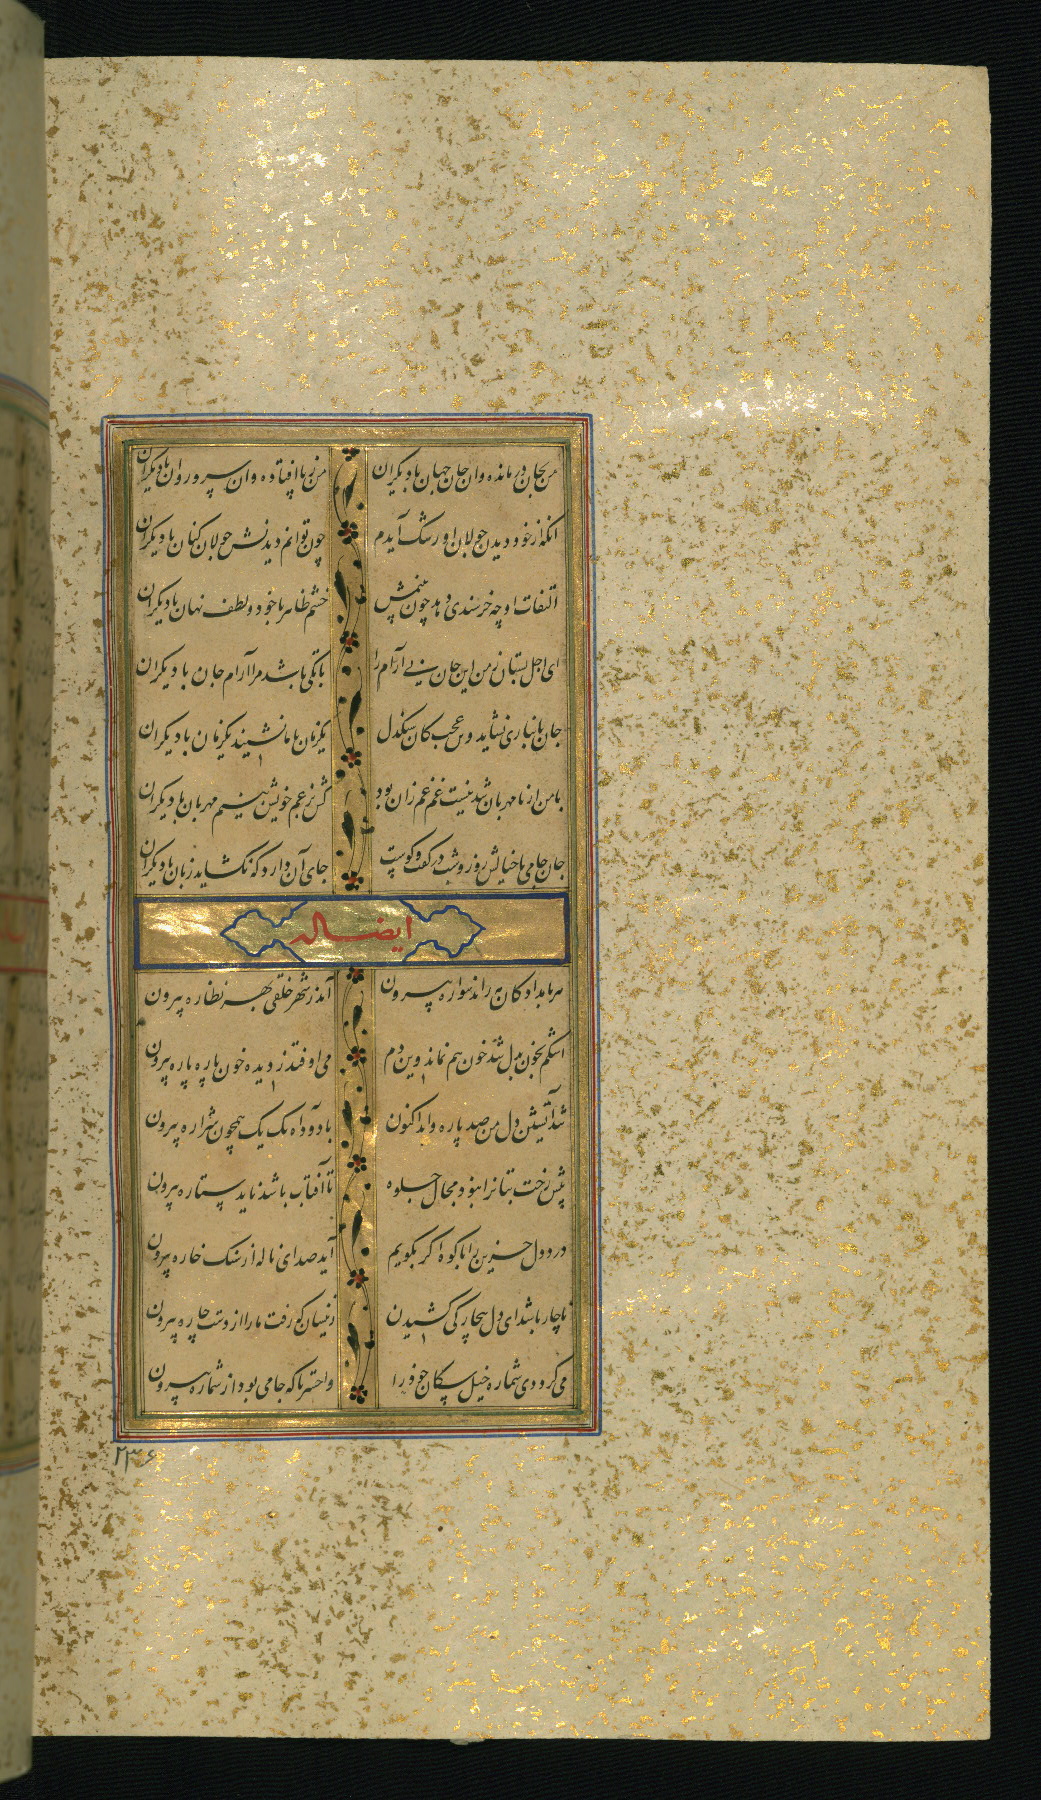 من بجان درمانده وان جان جهان با دیکران من ز پا افتاده وان سرو روان با دیکران
انکه از خود دیدن جولان او رشک آیدم چون توانم دیدنش جولان کنان با دیکران
التفات او چه خرسندی دهد چون بینمش خشم ظاهر با خود و لطف نهان با دیکران
ای اجل بستان ز من این جان بی آرام را تا بکی باشد مرا آرام جان با دیکران
جان بانبازی نشاید وین عجب کان سنکدل یکزمان با ما نشیند یکزمان با دیکران
با من ار نامهربان شد نیست غم غم زان بود کز رغم خویش بینم مهربان با دیکران
جان جامی با خیالش روز و شب در کفت و کوست جای آن دارد که نکشاید زبان با دیکران
ایضا له
هر بامداد کان مه راند سواره بیرون آمد ز شهر خلقی بهر نظاره بیرون
اشکم بخون بدل شد خون هم نماند وین دم می اوفتد ز دیده خون پاره پاره بیرون
شد آتشین دل من صد پاره واید اکنون با دود آه یک یک همچون شراره بیرون
پیش رخت بتانرا نبود مجال جلوه تا آفتاب باشد ناید ستاره بیرون
درد دل حزین را با کوه اکر بکویم آید صدای ناله از سنک خاره بیرون
ناچار باشد ای دل بیچارکی کشیدن زینسان که رفت مارا از دست چاره بیرون
می کرد دی شماره خیل سکان خود را واحسرتا که جامی بود از شماره بیرون
۲۳۶